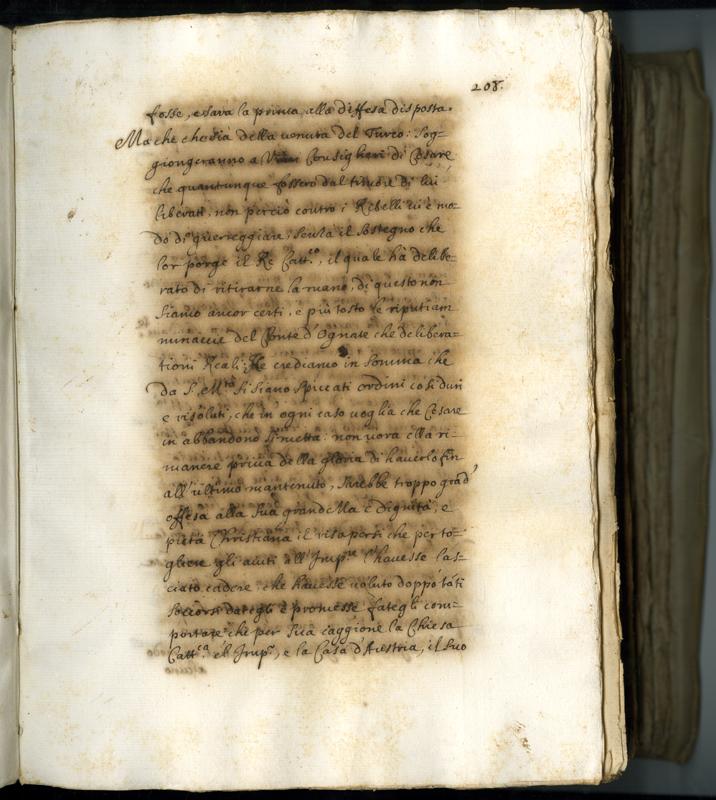 208.
fosse, e sarà la prima, alla diffesa disposta.
Ma che che sia della venuta del Turco: sog-
giongeranno a V. Consiglieri di Cesare
che quantunque fossero dal timore di lui
liberati, non perciò contro i Rebelli vi è mo-
do di guerreggiare, senza il sostegno che
lor porge il Re Catt.co, il quale ha delibe-
rato di ritirarne la mano, di questo non
siamo ancor certi, e più tosto le riputiam
minaccie del Conte d'Ognate che delibera-
tioni Reali; Ne crediamo in somma che
da S. M.tà si siano spiccati ordini così duri
e risoluti, che in ogni caso voglia che Cesare
in abbandono si metta: non vorà ella ri-
manere priva della gloria di haverlo fin
all'ultimo mantenuto, sarebbe troppo grad'
offesa alla sua grande Ma e dignità, e
pietà Christiana il risapersi che per to-
gliere gli aiuti all'Imp.re l'havesse las-
ciato cadere, che havesse voluto doppò tãti
soccorsi dategli è promesse fategli com-
portare che per sua caggione la Chiesa
Catt.ca el' Imp.o, e la Casa d'Austria, il suo